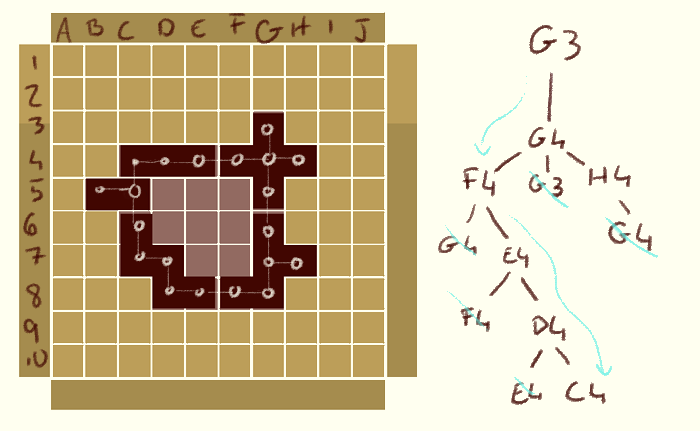 A B C D E F G H I J
1
2
3
4
5
6
7
8
9
10
G3
G4
F4 G3 H4
G4 E4 G4
F4 D4
E4 C4